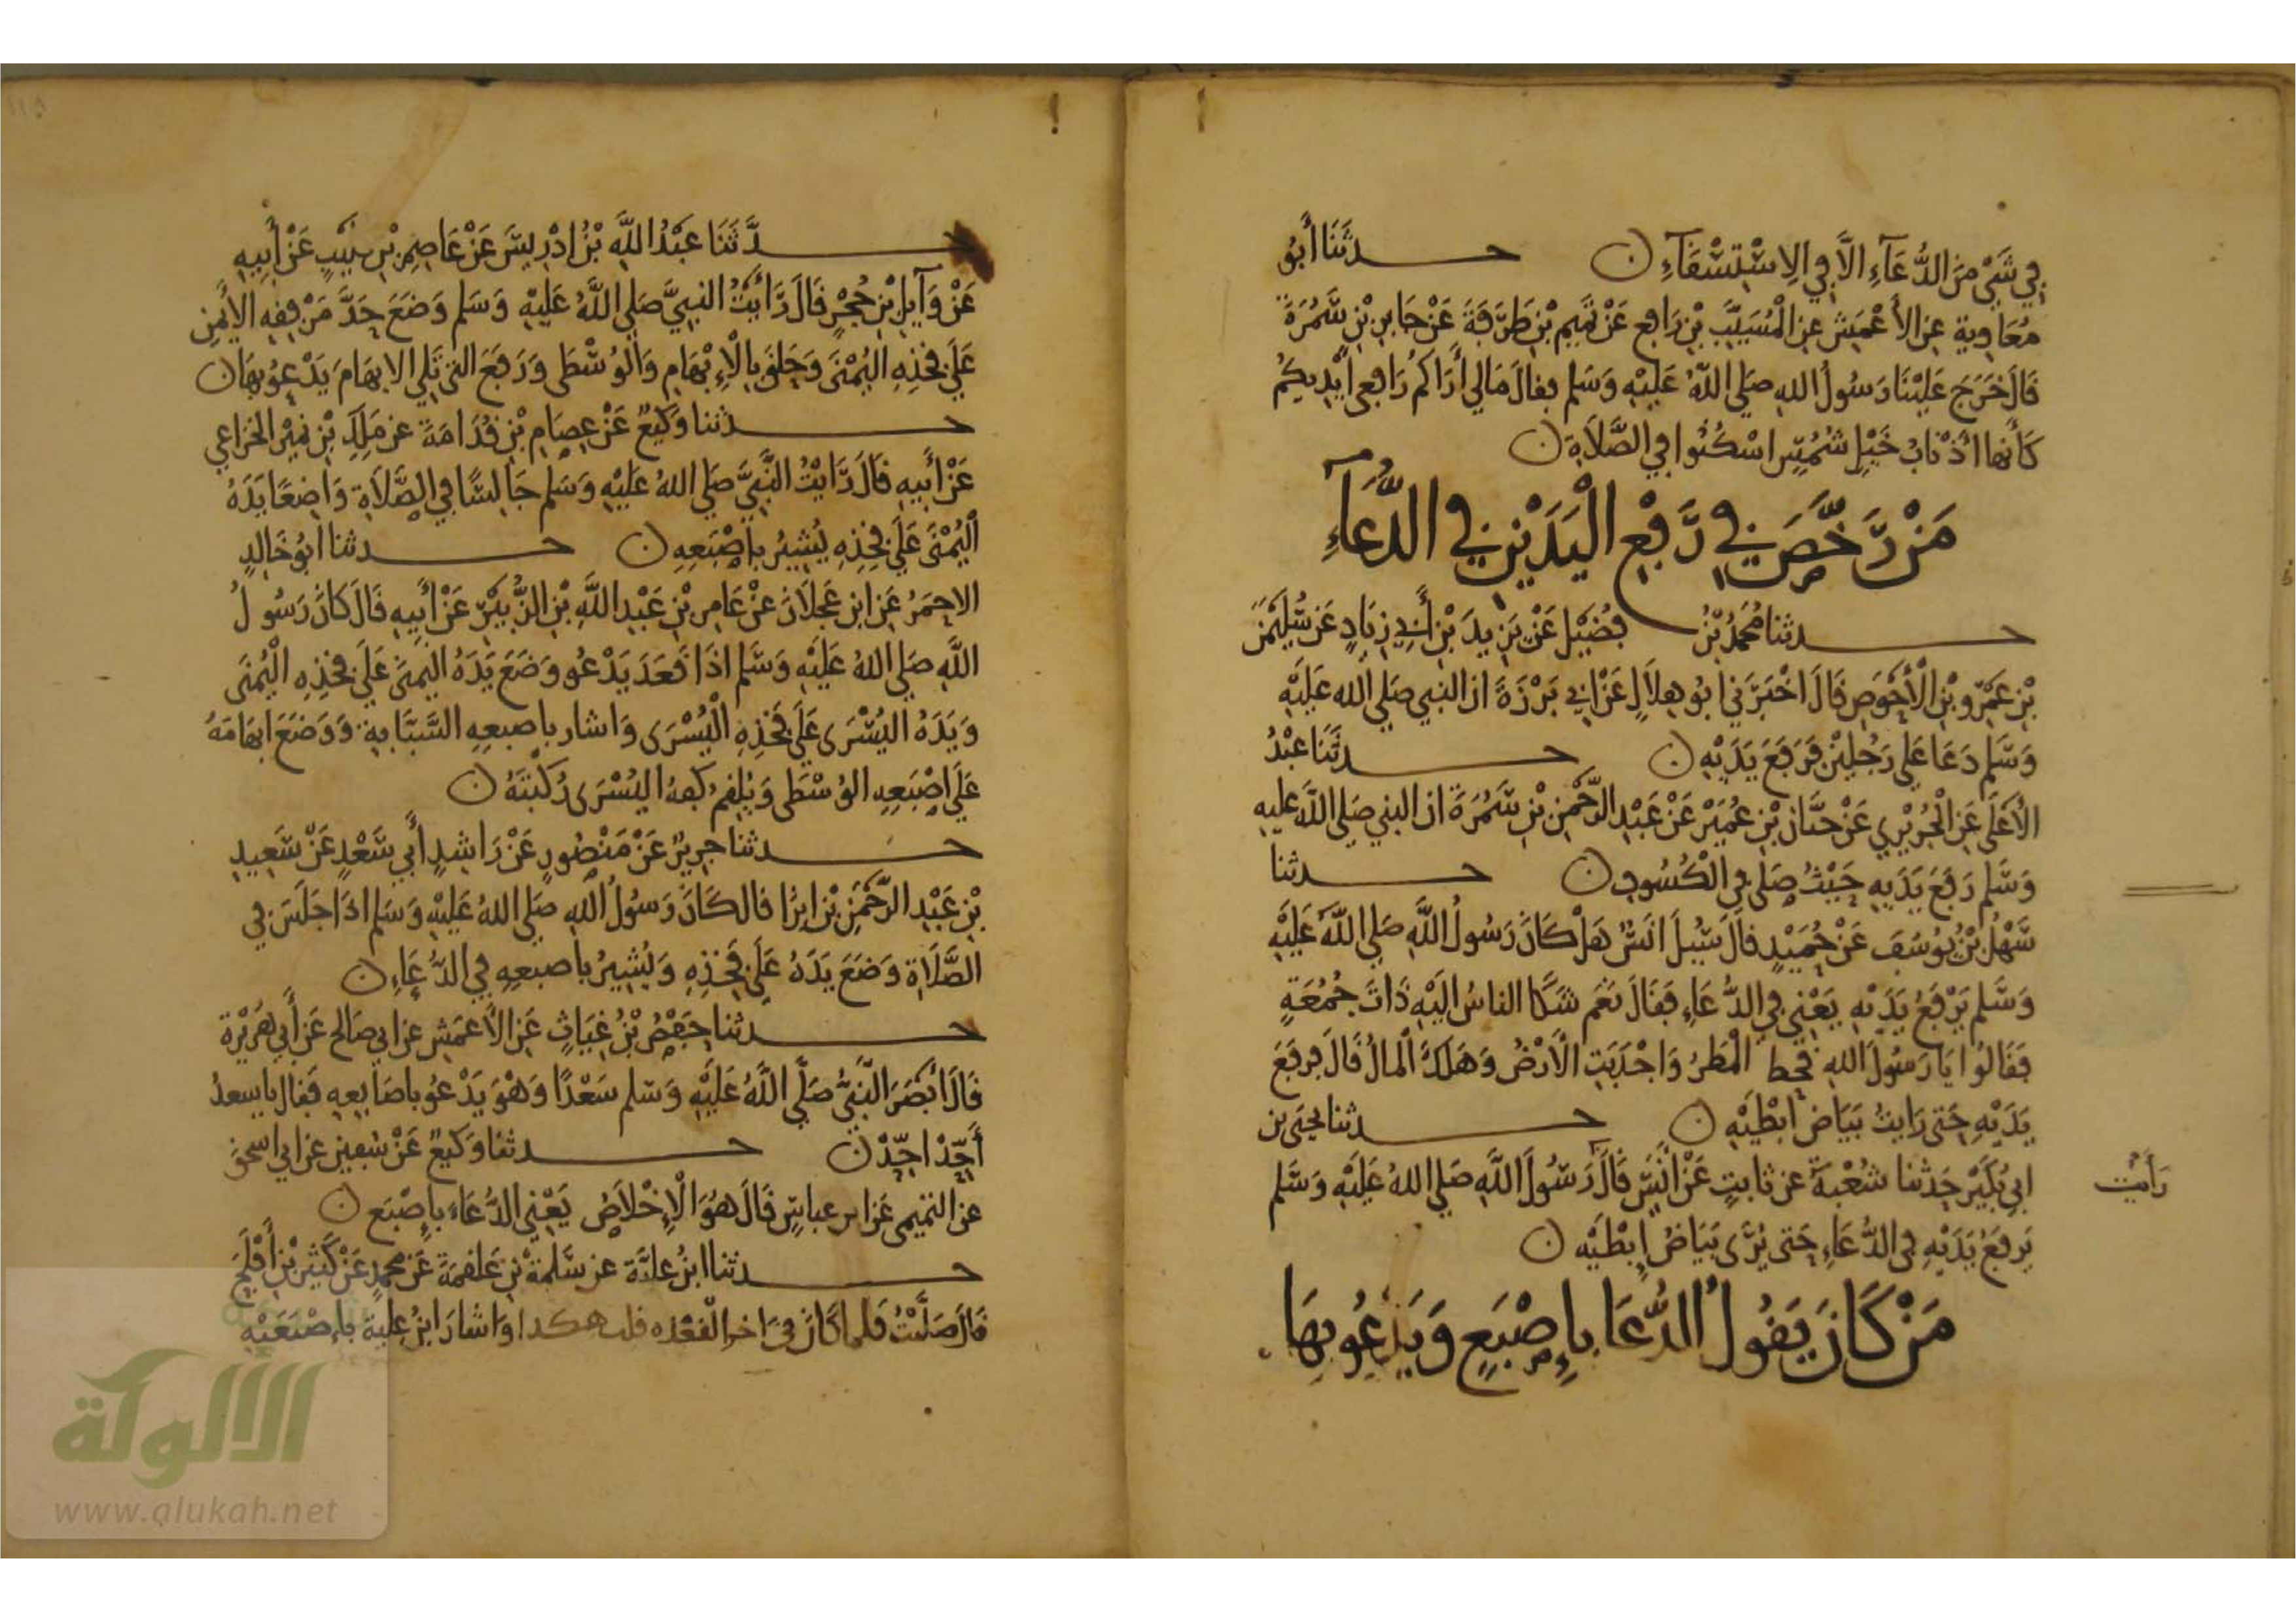 في شَيْءٍ مِنَ الدُّعَآءِ اِلَّا فِي الِاسْتِسْقَآءِ ن حدثَنَا أَبُو
مُعَاوِية عنِ الأَعْمَشِ عنِ الْمُسَيَّبِ بْنِ رَافِع عَنْ تَمِيمِ بْنِ طَرَفَةَ عَنْ جَابِرِ بْنِ سَمُرَةَ
قَالَ خَرَجَ عَلَيْنَا رَسُولُ اللهِ صَلَى اللهُ عَلَيْهِ وَسَلم فقالَ مَالي أَرَاكُم رَافِعى أَيْدِيكُم
كَأَنهَا اذْنَابُ خَيْلٍ شُمُسٍ اسْكُنُوا فِي الصَّلَاةِ ن
مَنْ رَخَّصَ فِي رَفْعِ الْيَدَيْنِ فِي الدُّعَآءِ
حدثنا مُحَمَّدُ بْنُ فُضَيْل عَنْ يَزِيدَ بْنِ أَبِي زِيَادٍ عَنْ سُلَيْمٰنَ
بْنِ عَمْرِو بْنِ الْأَحْوَصِ قَالَ اخْبَرَنِي ابُو هِلَالٍ عَنْ ابي بَرْزَةَ ان النبي صَلى الله عَلَيْهِ
وَسَلم دَعَا عَلى رَجُلَيْنِ فَرَفَعَ يَدَيْهِ ن حدثَنَا عَبْدُ
الْأَعْلَى عَنِ الْجُرَيْرِي عَنْ حَيَّان بْنِ عُمَيْر عَنْ عَبْدِ الرَّحْمٰنِ بْنِ سَمُرَةَ ان النبي صَلى اللهُ عليه
وَسَلم رَفَعَ يَدَيهِ حَيْثُ صَلى فِي الْكُسُوفِ ن حدثنا
سَهْلُ بْنُ يُوسُفَ عَنْ حُمَيْدٍ قالَ سُئِلَ انَسٌ هَلْ كَانَ رَسُولُ اللهِ صَلى اللهُ عَلَيْهِ
وَسَلم يَرْفَعُ يَدَيْهِ يَعْنِي فِي الدُّعَاءِ فَقَالَ نَعَم شَكَا الناسُ الَيْهِ ذَاتَ جُمُعَةٍ
فَقَالُوا يَا رَسُولَ اللهِ قحط الْمَطَرُ وَاجْدَبَتِ الْأَرْضُ وَهَلَكَ الْمالُ قَالَ فرفَعَ
يَدَيْهِ حَتى رَايتُ بَيَاضَ ابْطَيْهِ ن حدثنا يَحْيَى بن
ابِي بُكَيْر حَدثنا شُعْبَةُ عن ثابتٍ عَنْ انَسٍ قَالَ رَسُولَ اللهِ صَلى اللهُ عَلَيْهِ وَسَلم
رَأَيْت
يَرفَعُ يَدَيْهِ فِي الدُّعَاءِ حَتى يُرَى بَيَاضُ إِبْطَيْهِ ن
مَنْ كَانَ يَقُولُ الدُّعَا بِإِصْبَعٍ وَيَدْعُو بِهَا
حدَّثَنَا عَبْدُ اللهِ بْنُ ادْرِيسَ عَنْ عَاصِمِ بْنِ كُلَيْبٍ عَنْ أَبِيهِ
عَنْ وَآئِلِ بْنِ حُجْرٍ قَالَ رَأَيْتُ النبِيَّ صَلى اللهُ عَلَيْهِ وَسَلم وَضَعَ حَدَّ مَرْفِقِهِ الأَيْمَنِ
عَلَى فَخِذِهِ اليُمْنَى وَحَلَّقَ بِالْإِبْهَامِ وَالْوُسْطَى وَرَفَعَ التي تَلي الابهَامَ يَدْعُو بِهَا ن
حدثنا وَكِيعٌ عَنْ عِصَامِ بْنِ قُدَامَةَ عن مَلِكِ بْنِ نُمَيْر الخزاعي
عَنْ أَبِيهِ قَالَ رَأَيْتُ النَّبِيَّ صَلى اللهُ عَلَيْهِ وَسَلم جَالِسًا فِي الصَّلَاةِ وَاضِعًا يَدَهُ
الْيُمْنَى عَلَى فَخِذِهِ يُشِيرُ بِاصْبَعِهِ ن حدثنا ابُو خَالِدٍ
الاحمَرُ عَنِ ابنِ عَجْلَانَ عنْ عَامِرِ بْنِ عَبْدِ اللهِ بْنِ الزُّبَيْرِ عَنْ أَبِيهِ قَالَ كَانَ رَسُولُ
اللهِ صَلى اللهُ عَلَيْهِ وَسَلم اذَا قَعَدَ يَدْعُو وَضَعَ يَدَهُ اليُمنَى عَلَى فَخِذِهِ الْيُمْنَى
وَيَدَهُ اليُسْرَى عَلَى فَخِذِهِ الْيُسْرَى وَاشار باصبعِهِ السَّبَّابةِ وَوَضَعَ ابهَامَهُ
عَلَى اصْبَعِهِ الوُسْطَى وَيُلْقِم كفهُ اليُسْرَى رُكْبَتَهُ ن
حدثنا جَرِيرٌ عَنْ مَنْصُورٍ عَنْ رَاشِدٍ أَبِي سَعْدٍ عَنْ سَعِيدِ
بْنِ عَبْدِ الرَّحْمٰنِ بْنِ ابزا قال كَانَ رَسُولُ اللهِ صَلى اللهُ عَلَيْهِ وَسَلم اذَا جَلَسَ فِي
الصَّلَاةِ وَضَعَ يَدَهُ عَلَى فَخِذِهِ وَيُشِيرُ باصبعِهِ فِي الدُّعَاءِ ن
حدثنا حَفْصُ بْنُ غِيَاثٍ عَنِ الأَعمَشِ عن ابي صَالحِ عَنْ أَبِي هُرَيْرَة
قَالَ ابْصَرَ النَّبِيُّ صَلَّى اللهُ عَلَيْهِ وَسَلم سَعْدًا وَهْوَ يَدْعُو باصَابِعِهِ فَقال يا سعدُ
أَحِّدْ احِّدْ ن حدثنا وَكيعٌ عَنْ سُفين عن ابي اسحق
عن التميمى عَنِ ابن عباسٍ قَالَ هُوَ الْإِخْلَاصُ يَعْنِي الدُّعَاءَ بِإِصْبَع ن
حدثنا ابنُ عليَّة عن سَلَمةَ بْنِ عَلقمَةَ عَن محمدٍ عَنْ كَثِيرِ بْنِ أَفْلَحَ
قالَ صَلَّيْتُ فَلما كَانَ في آخرِ القَعْدَه قلت هكدا وَاشارَ ابنُ عليةَ بإِصْبَعَيْهِ
الألوكة
www.alukah.net